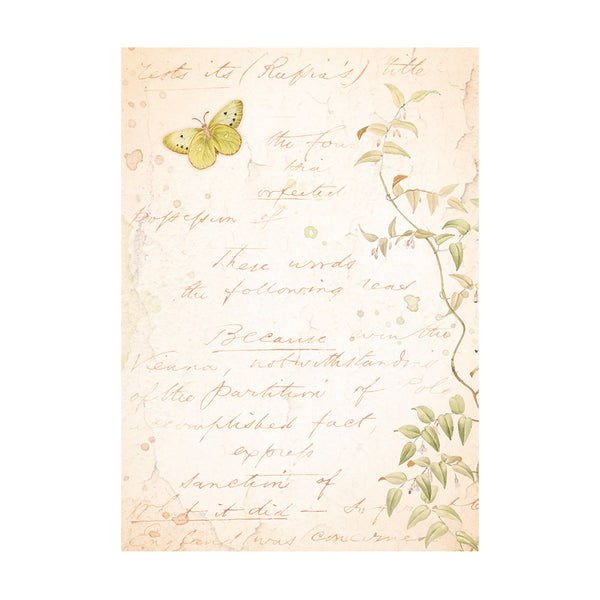 rests its (Russia's) title
the four
this
orfeited
possession of
These words
the following reas
Because even the
Vienna, notwithstanding
of the partition of Pola
accomplished fact,
express
sanction of
it did — So far
England (was) concerned